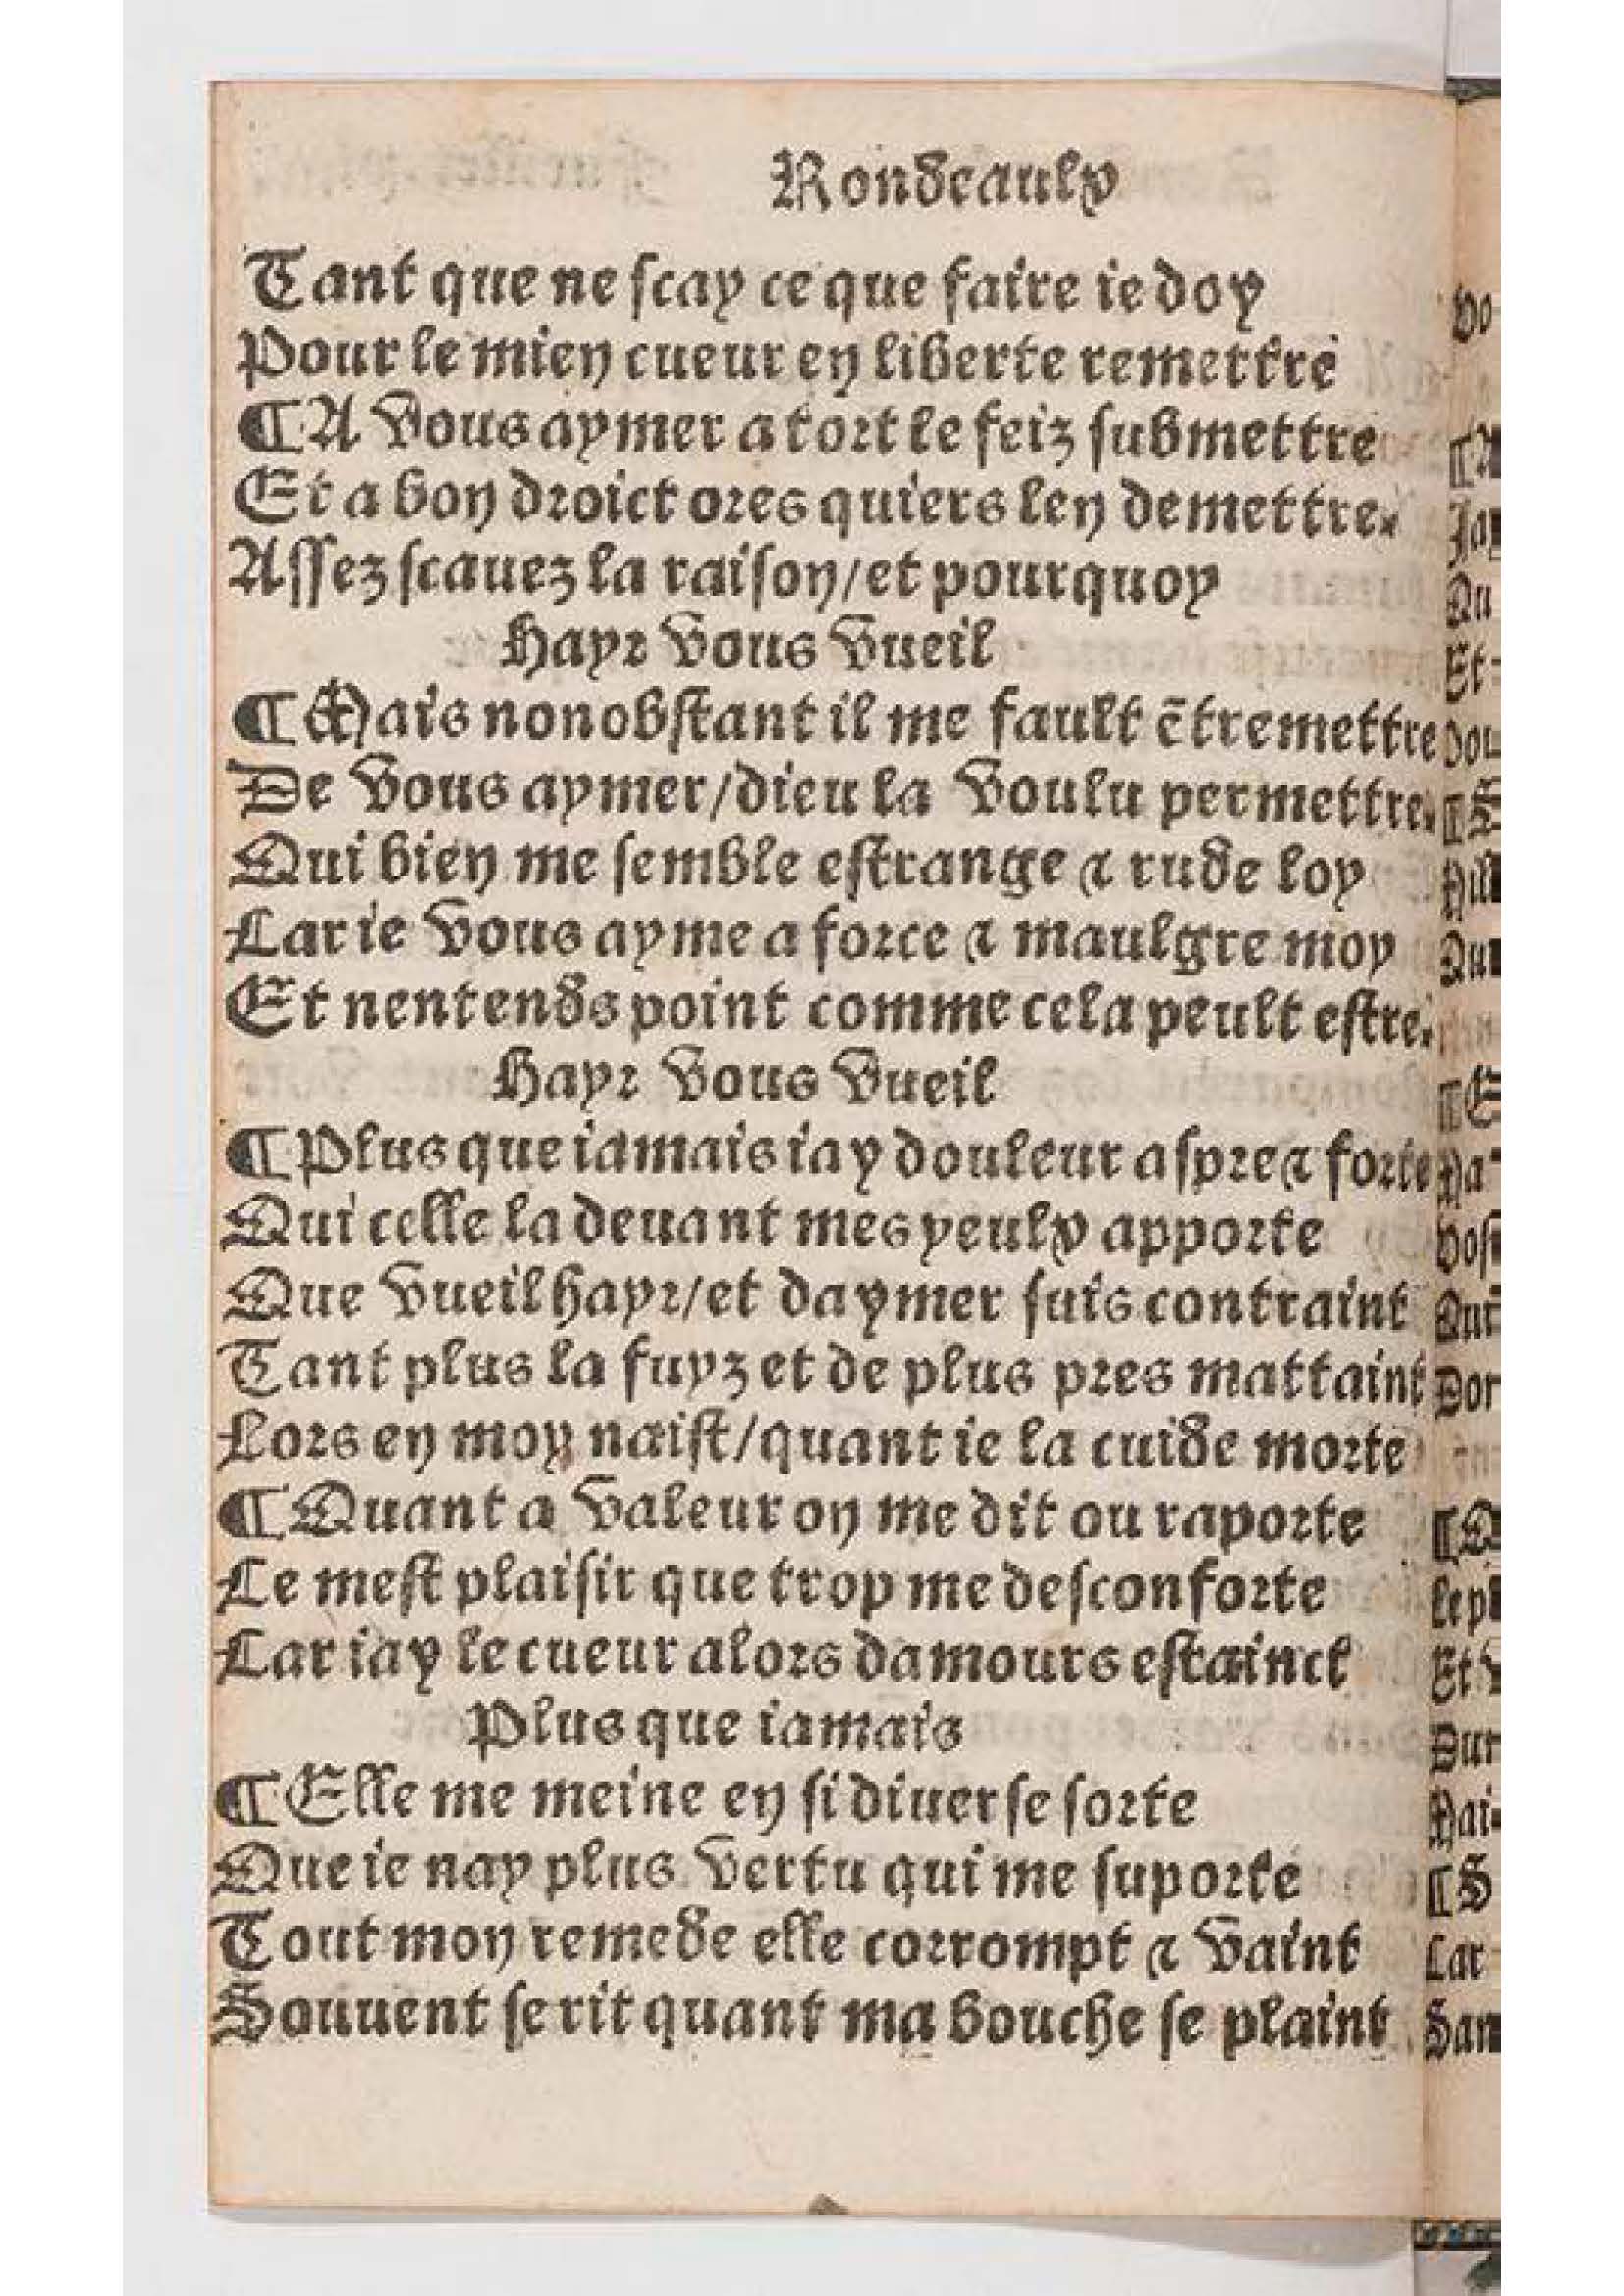 Rondeaulx
Tant que ne scay ce que faire ie doy
Pour le mien cueur en liberte remettre
¶ A vous aymer a tort le feiz submettre
Et a bon droict ores quiers len demettre.
Assez scauez la raison/et pourquoy
Hayr vous vueil
¶ Mais nonobstant il me fault ẽtremettre
De vous aymer/dieu la voulu permettre.
Qui bien me semble estrange & rude loy
Car ie vous ayme a force & maulgre moy
Et nentends point comme cela peult estre.
Hayr vous vueil
¶ Plus que iamais iay douleur aspre & forte
Qui celle la deuant mes yeulx apporte
Que vueil hayr/et daymer suis contraint
Tant plus la fuyz et de plus pres mattaint
Lors en moy naist/quant ie la cuide morte
¶ Quant a valeur on me dit ou raporte
Ce mest plaisir que trop me desconforte
Car iay le cueur alors damours estainct
Plus que iamais
¶ Elle me meine en si diuerse sorte
Que ie nay plus vertu qui me suporte
Tout mon remede elle corrompt & vaint
Souuent se rit quant ma bouche se plaint